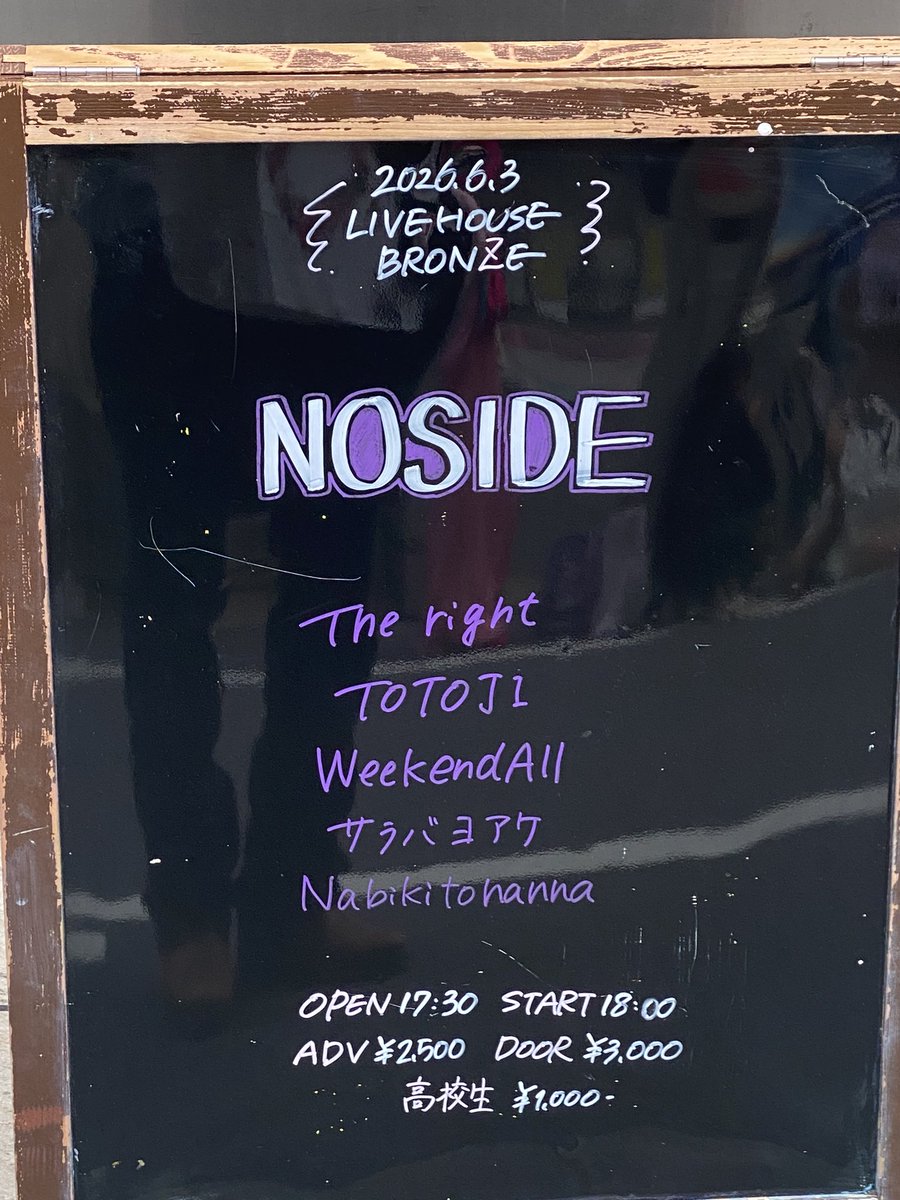 2026.6.3
LIVEHOUSE
BRONZE
NOSIDE
The right
TOTOJI
WeekendAll
サラバヨアケ
Nabikitohanna
OPEN 17:30 START 18:00
ADV ¥2,500 DOOR ¥3,000
高校生 ¥1,000-